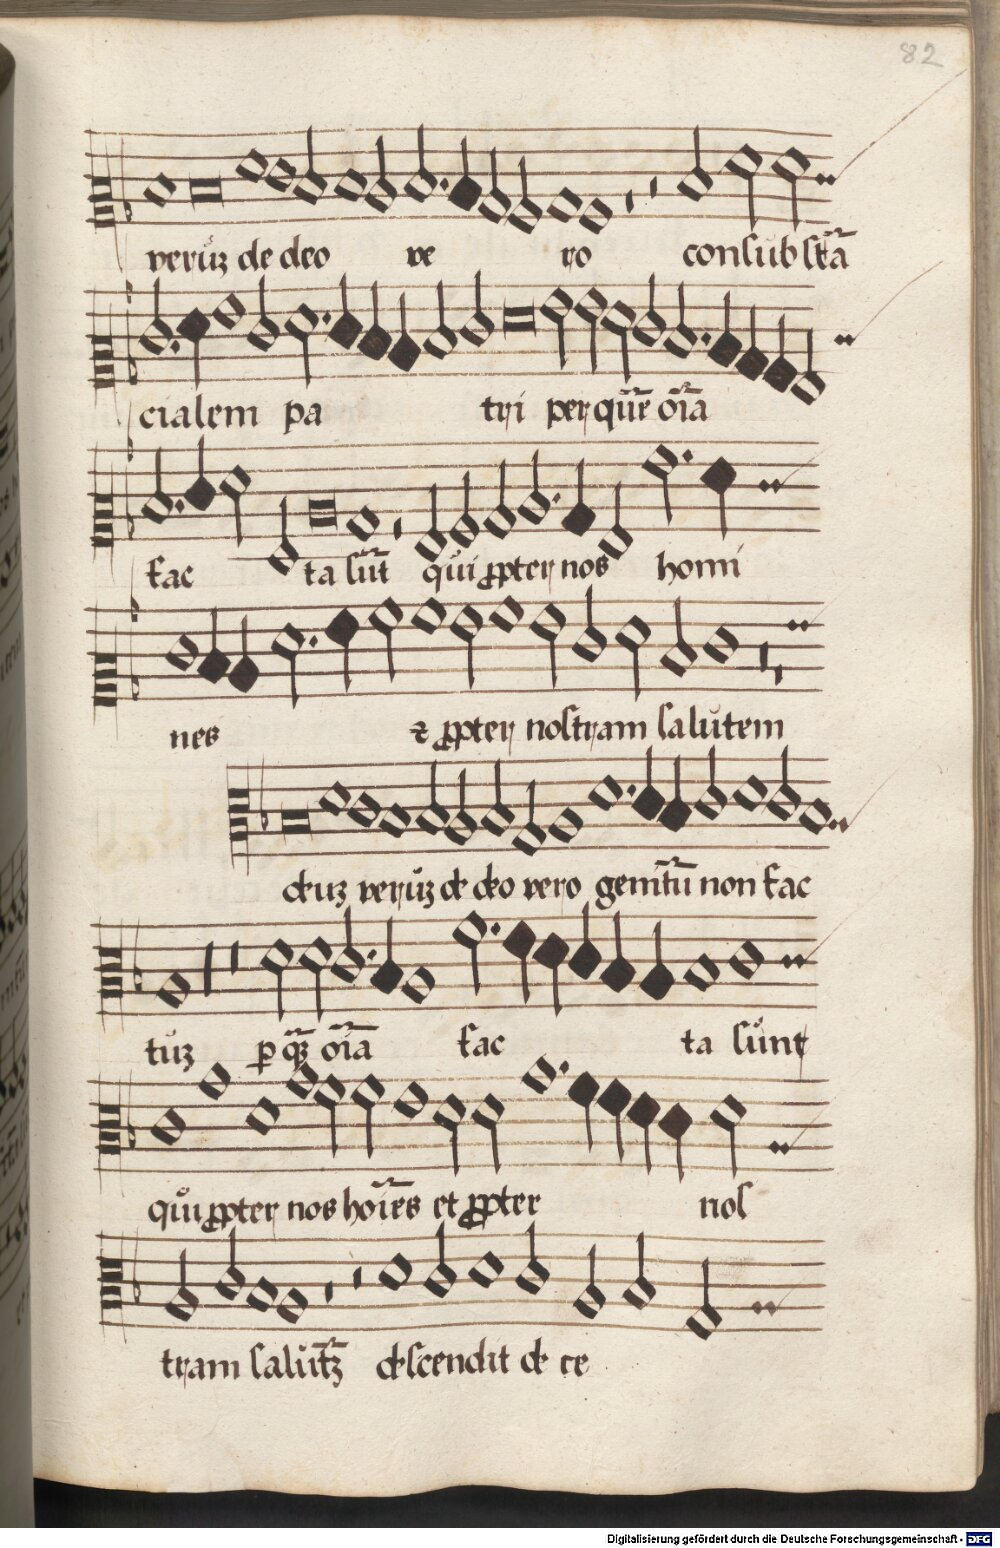 82
verūz de deo ve ro consubstā
cialem pa tri per quē oīa
fac ta sūt qui ꝓpter nos homi
nes ⁊ ꝓpter nostram salutem
deuz verūz de deo vero genitū non fac
tūz ꝑ qz̄ oīa fac ta sunt
qui ꝓpter nos hoīes et ꝓpter nos
tram salutz̄ descendit de ce
Digitalisierung gefördert durch die Deutsche Forschungsgemeinschaft - DFG